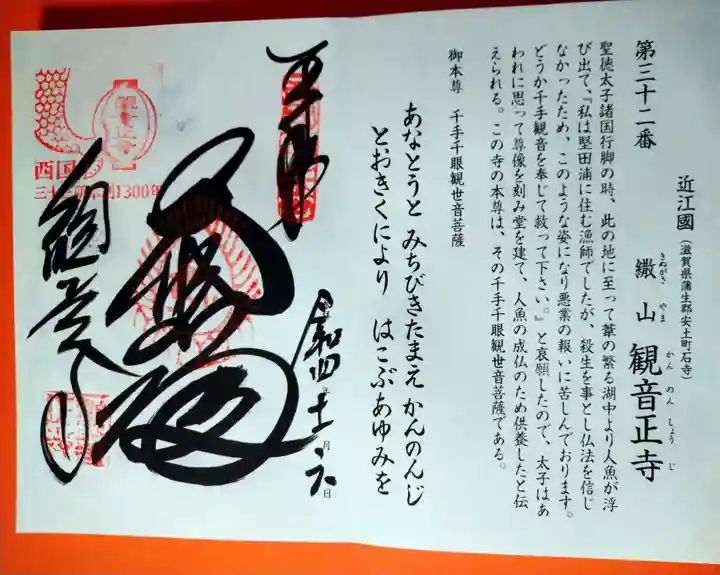 第三十二番
近江國（滋賀県蒲生郡安土町石寺）
繖山 観音正寺
きぬがさ やま かん のん しょう じ
聖徳太子諸国行脚の時、此の地に至って葦の繁る湖中より人魚が浮
び出て、『私は堅田浦に住む漁師でしたが、殺生を事とし仏法を信じ
なかったため、このような姿になり悪業の報いに苦しんでおります。
どうか千手観音を奉じて救って下さい。』と哀願したので、太子はあ
われに思って尊像を刻み堂を建て、人魚の成仏のため供養したと伝
えられる。この寺の本尊は、その千手千眼観世音菩薩である。
御本尊 千手千眼観世音菩薩
あなとうと みちびきたまえ かんのんじ
とおきくにより はこぶあゆみを
令和四年十一月六日
西国